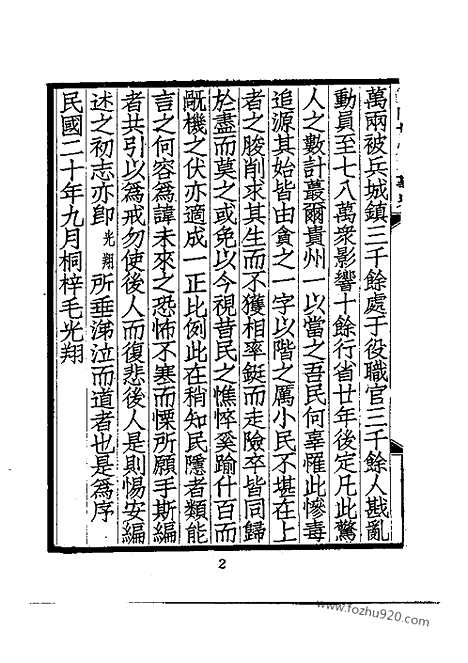 萬兩被兵城鎮三千餘處于役職官三千餘人戡亂
動員至七八萬衆影響十餘行省廿年後定凡此驚
人之數計蕞爾貴州一以當之吾民何辜罹此慘毒
追源其始皆由貪之一字以階之厲小民不堪在上
者之朘削求其生而不獲相率鋌而走險卒皆同歸
於盡而莫之或免以今視昔民之憔悴奚踰什百而
禍機之伏亦適成一正比例此在稍知民隱者類能
言之何容爲諱未來之恐怖不寒而慄所願手斯編
者共引以爲戒勿使後人而復悲後人是則惕安編
述之初志亦卽光翔所垂涕泣而道者也是爲序
民國二十年九月桐梓毛光翔
2
www.fozhu920.com